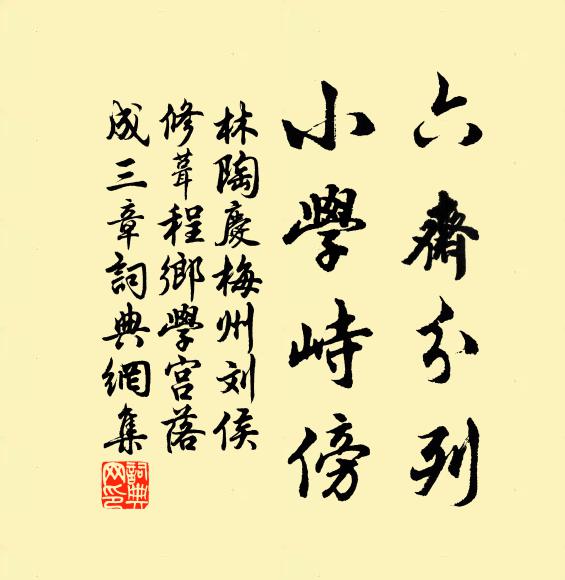 六齋分列
小學峙傍
林陶慶梅州刘侯
修葺程鄉學宫落
成三章詞典網集
詞典
网印